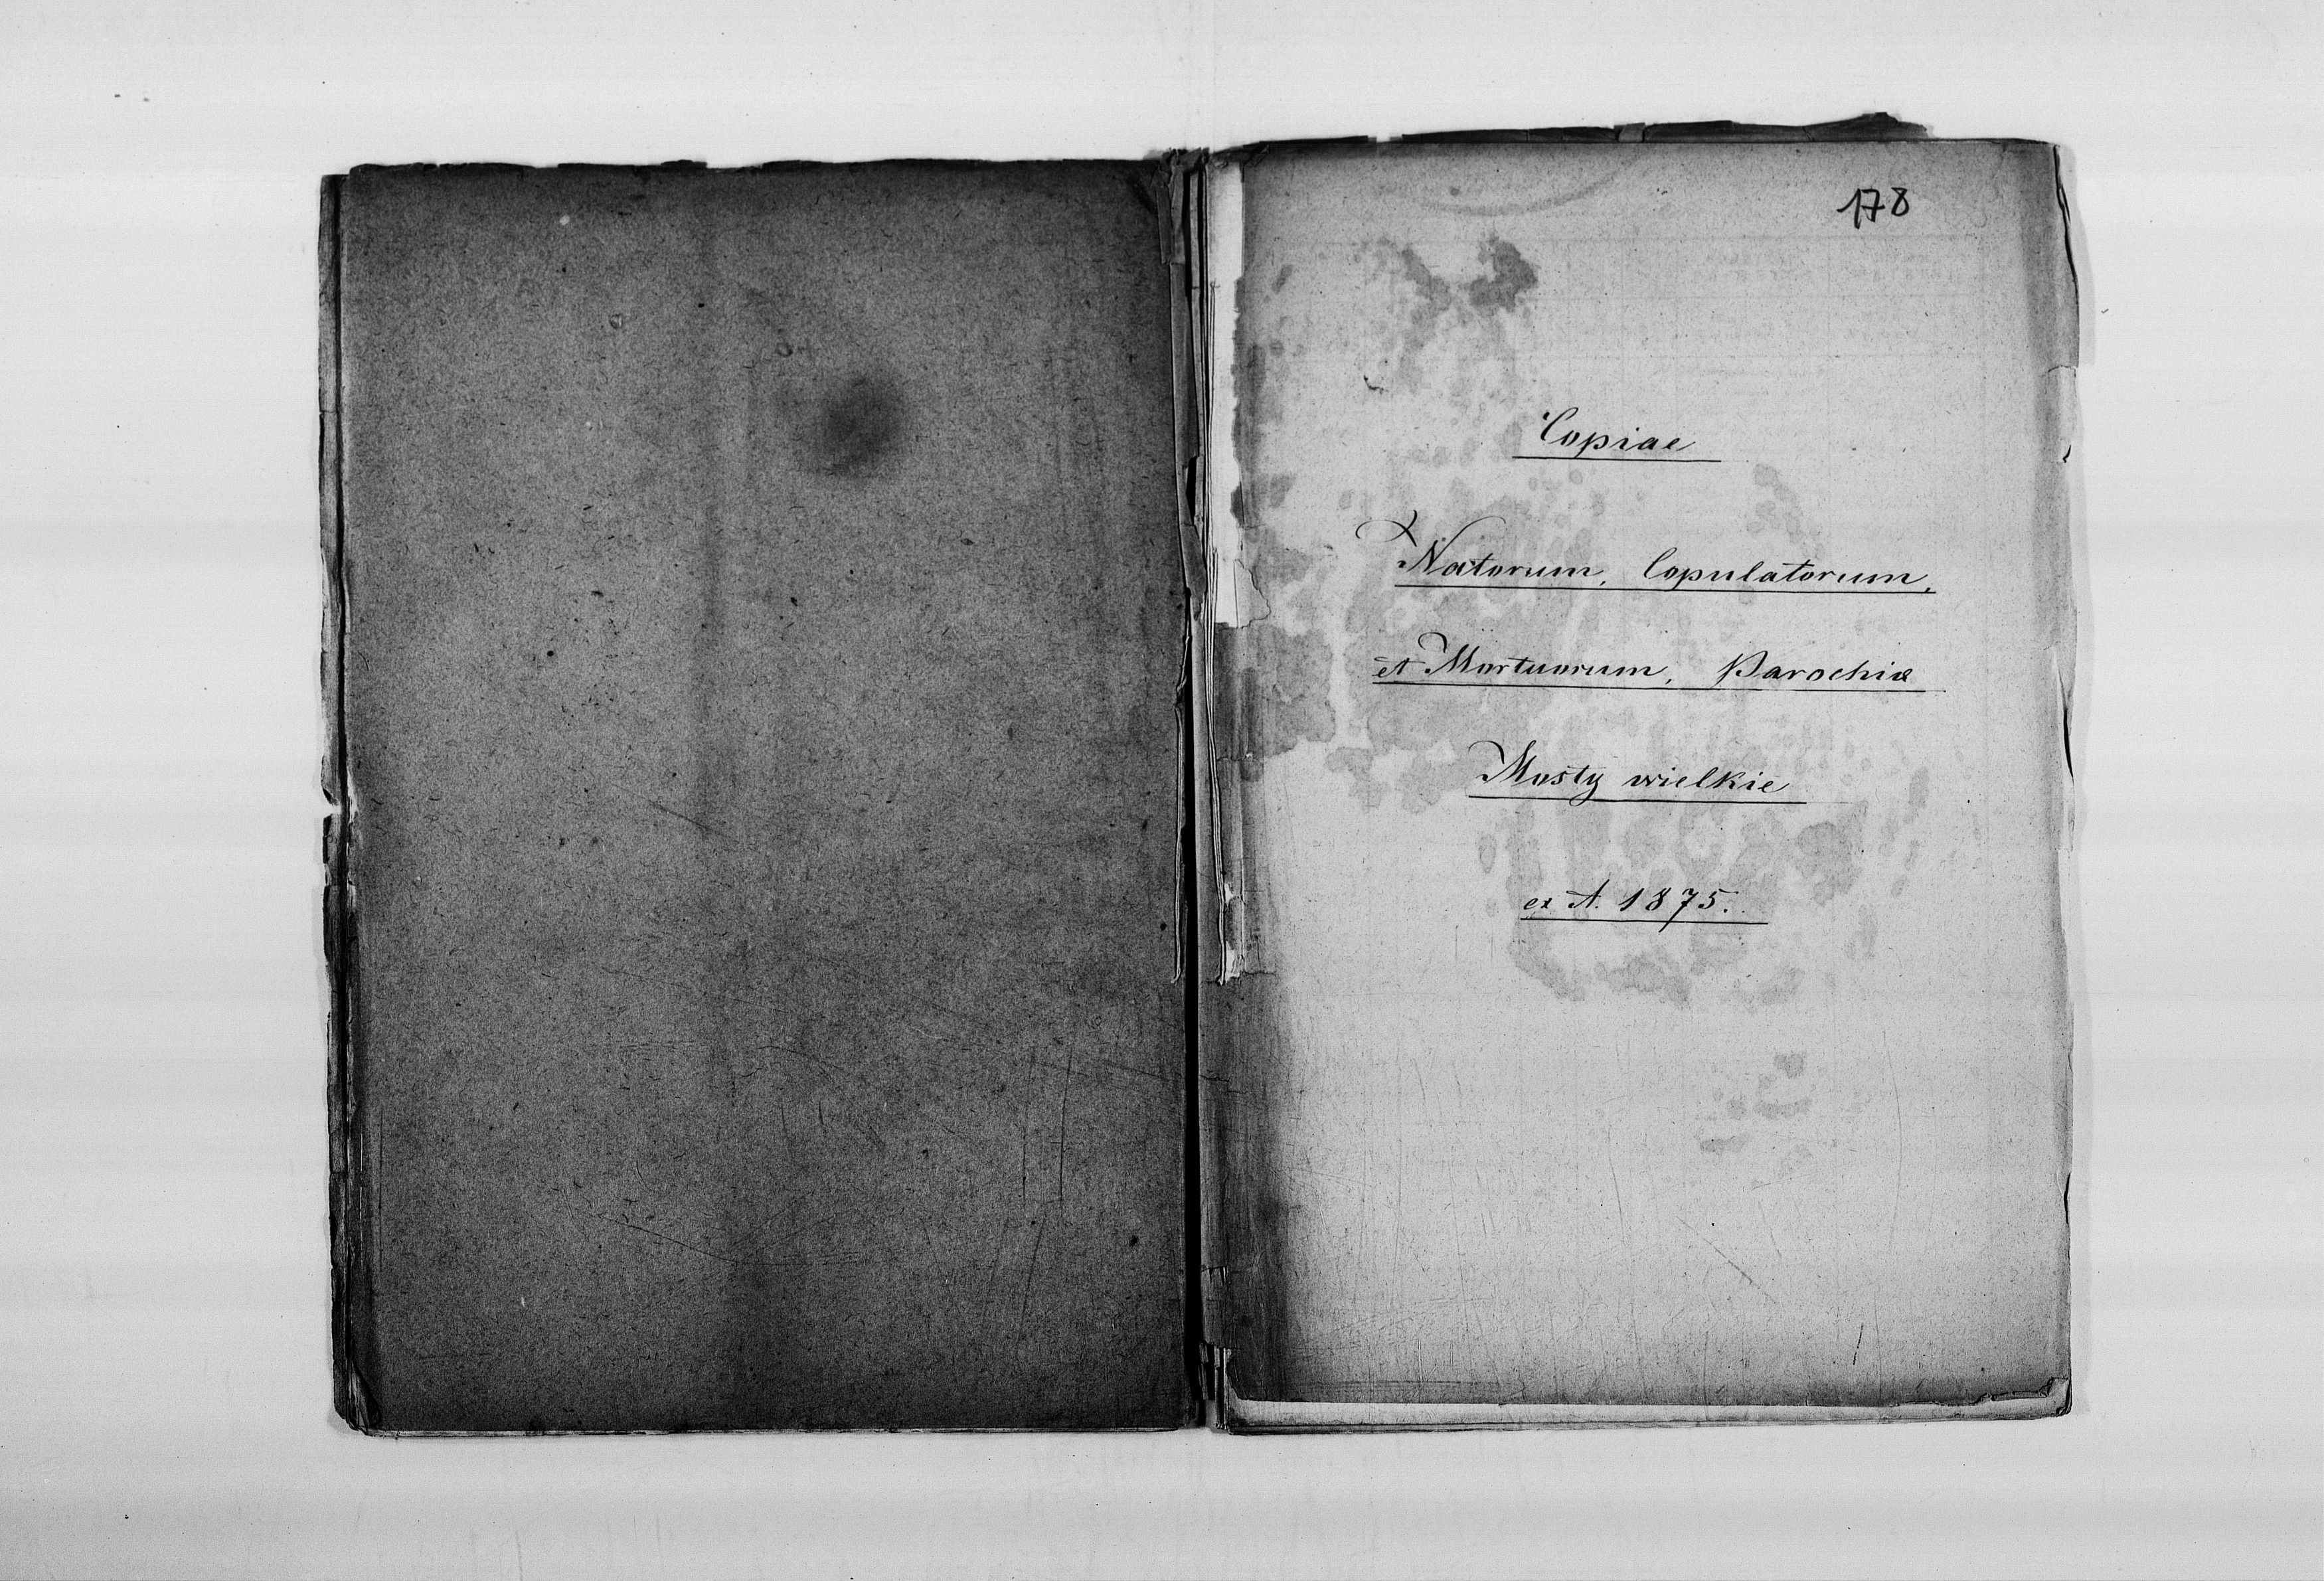 178
Copiae
Natorum, Copulatorum,
et Mortuorum, Parochiæ
Mosty wielkie
ex A. 1875.